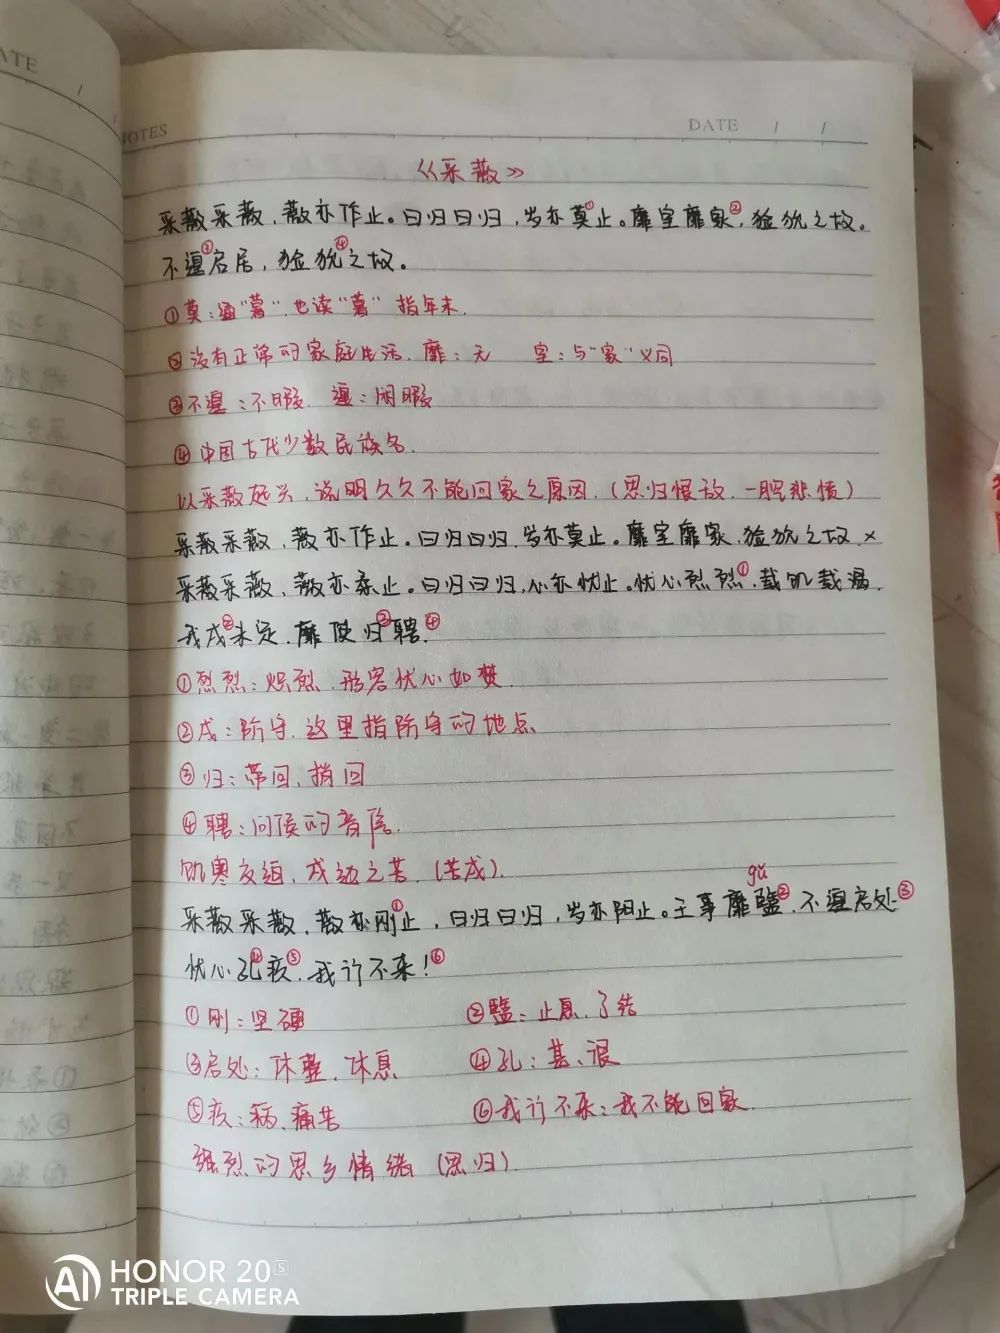 ATE
NOTES
DATE / /
《采薇》
采薇采薇，薇亦作止。曰归曰归，岁亦莫①止。靡室靡家②，猃狁之故。
不遑③启居，猃狁④之故。
①莫：通“暮”也读“暮”指年末.
②没有正常的家庭生活. 靡：无 室：与“家”义同
③不遑：不暇. 遑：闲暇
④中国古代少数民族名.
以采薇起兴，说明久久不能回家之原因.（思归恨敌，一腔悲愤）
采薇采薇，薇亦作止。曰归曰归，岁亦莫止。靡室靡家，猃狁之故 ×
采薇采薇，薇亦柔止。曰归曰归，心亦忧止。忧心烈烈①，载饥载渴.
我戍②未定，靡使归③聘④.
①烈烈：炽烈，形容忧心如焚.
②戍：防守，这里指防守的地点
③归：带回，捎回
④聘：问候的音信.
饥寒交迫，戍边之苦（苦戍）.
gǔ
采薇采薇，薇亦刚①止，曰归曰归，岁亦阳止。王事靡盬②，不遑启处③
忧心孔④疚⑤，我行不来！⑥
①刚：坚硬 ②盬：止息，了结
③启处：休整，休息 ④孔：甚、很
⑤疚：病、痛苦 ⑥我行不来：我不能回家.
强烈的思乡情绪（思归）.
AI HONOR 20S
TRIPLE CAMERA